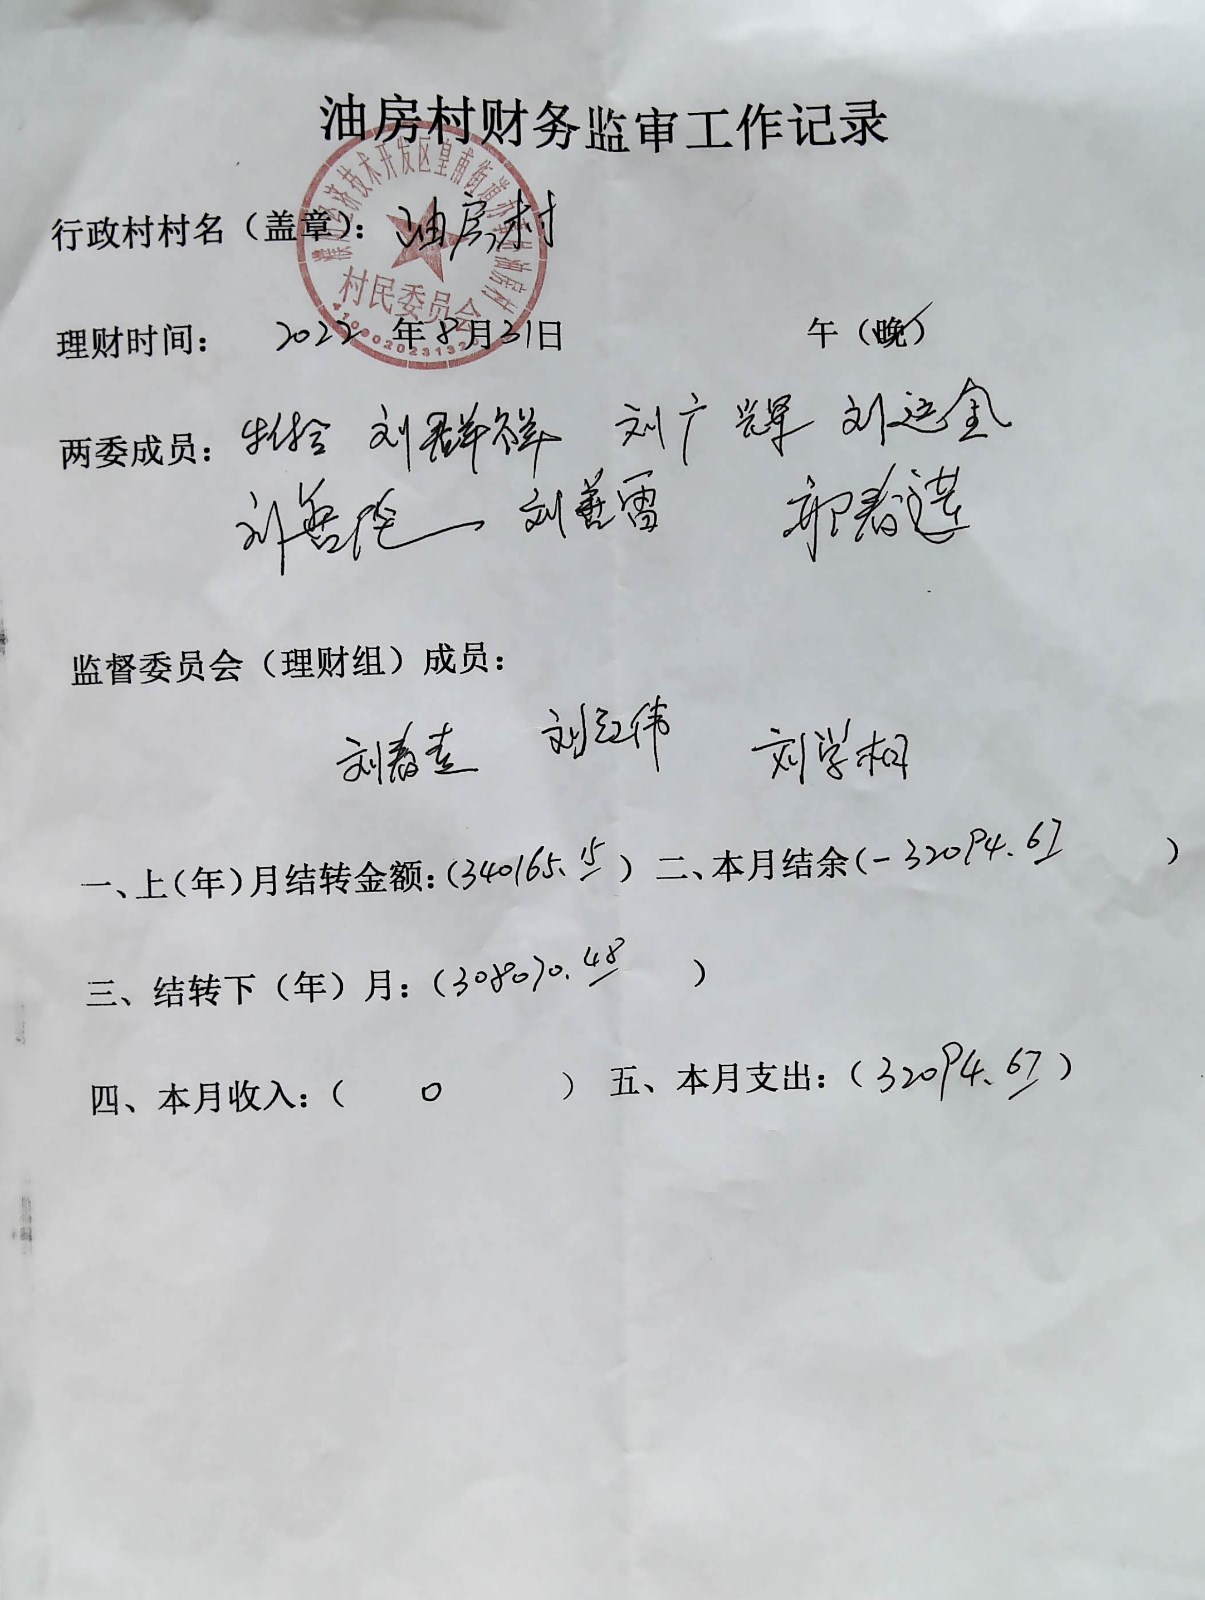 油房村财务监审工作记录
行政村村名（盖章）：油房村
村民委员会
理财时间： 2022 年 8月31日 午（晚）
两委成员： 刘群祥 刘广辉 刘运金
刘善雷 郭春选
监督委员会（理财组）成员：
刘春志 刘红伟 刘学相
一、上（年）月结转金额：（340165.15） 二、本月结余（-32094.67）
三、结转下（年）月：（308070.48）
四、本月收入：（ 0 ） 五、本月支出：（32094.67）